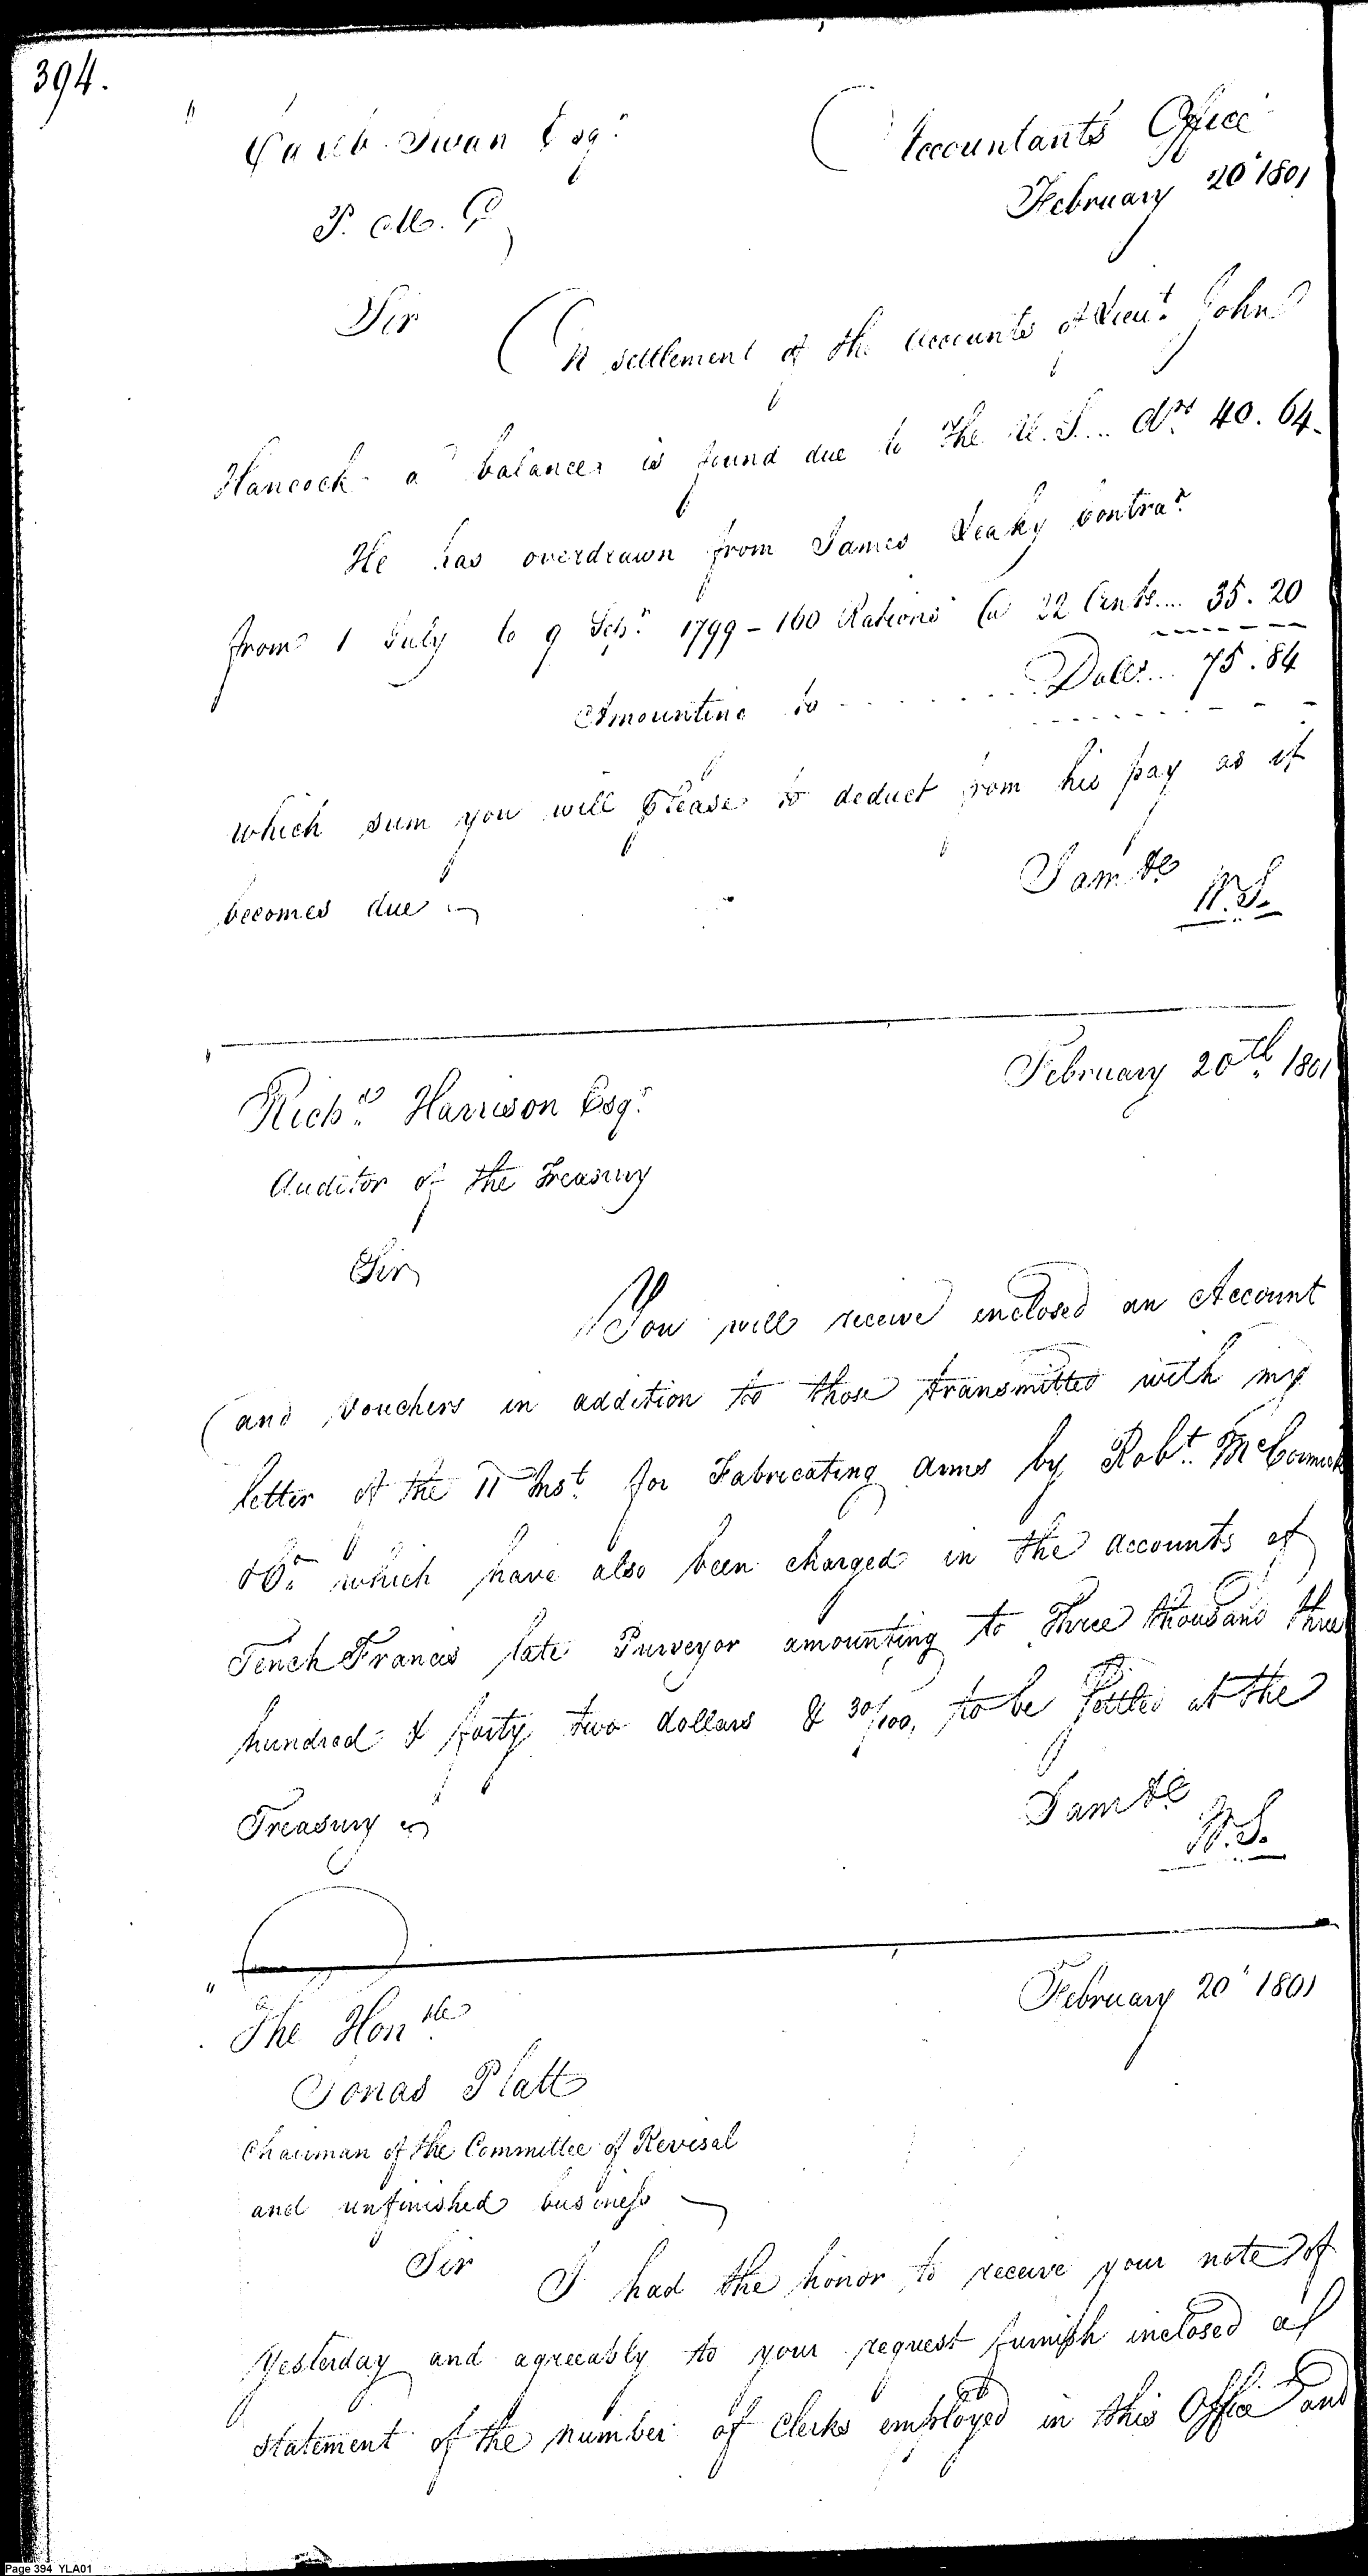 394.
Caleb Swan Esqr.
Accountants Office
February 20th 1801
P. M. G
Sir
In settlement of the accounts of Lieut. John
Hancock a balance is found due to the U. S... Drs 40.64.
He has overdrawn from James Leahy Contrar.
from 1 July to 9 Sepr. 1799 - 160 Rations @ 22 Cents.... 35.20
Amounting to . . . . . . . Dolls... 75.84
which sum you will please to deduct from his pay as it
becomes due
I am &c
W. S.
February 20th 1801
Richd. Harrison Esqr.
Auditor of the Treasury
Sir
You will receive enclosed an Account
and Vouchers in addition to those transmitted with my
letter of the 11 Inst. for Fabricating Arms by Robt. McCormick
&Co. which have also been charged in the accounts of
Tench Francis late Purveyor amounting to Three thousand three
hundred & forty two dollars & 30/100, to be Settled at the
Treasury
I am &c
W. S.
February 20th 1801
The Honble
Jonas Platt
Chairman of the Committee of Revisal
and unfinished business
Sir I had the honor to receive your note of
Yesterday and agreeably to your request furnish inclosed a
statement of the number of Clerks employed in this Office and
Page 394 YLA01